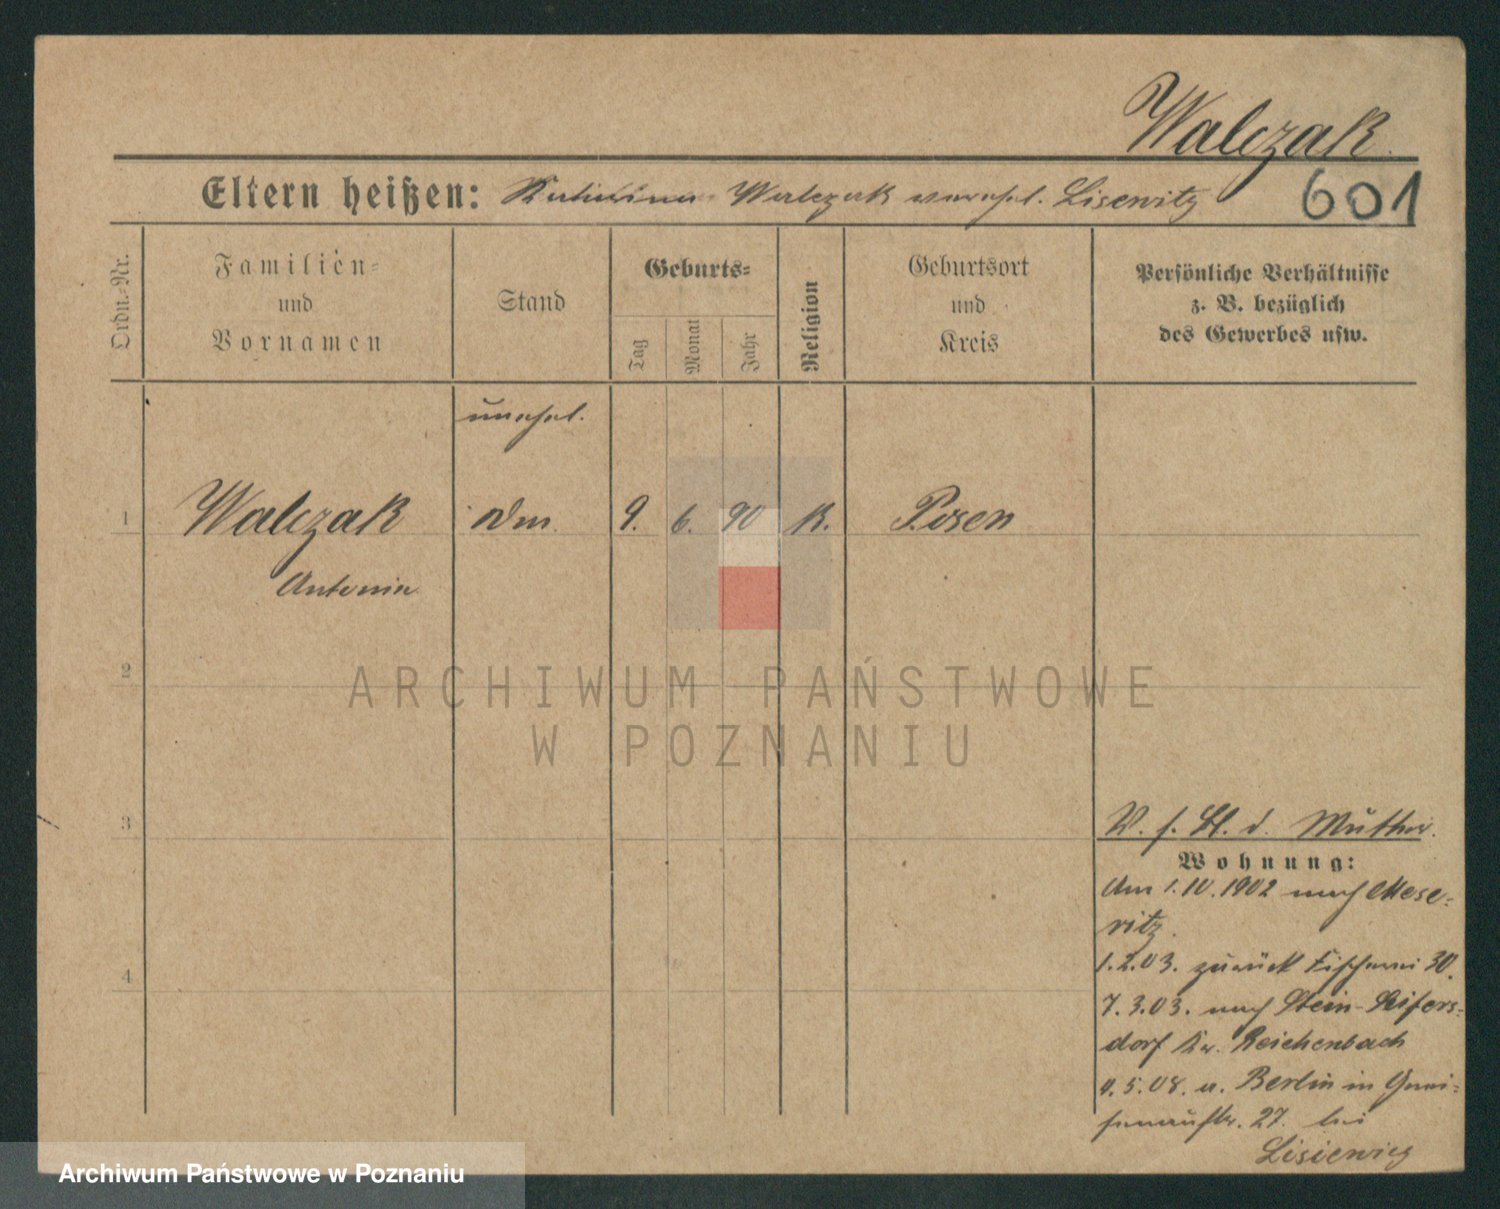 Walczak
Eltern heißen: Katharina Walczak verehel. Lisewitz
601
Ordn.-Nr.
Familien-
und
Vornamen
Stand
Geburts-
Tag
Monat
Jahr
Religion
Geburtsort
und
Kreis
Persönliche Verhältnisse
z. B. bezüglich
des Gewerbes usw.
unehel.
1 Walczak 9. 6. 90 K. Posen
Antonin
2
ARCHIWUM PAŃSTWOWE
W POZNANIU
3
V. s. Bl. d. Mutter.
Wohnung:
Am 1.10.1902 nach Mese-
ritz.
1.2.03. zurück Fischerei 30.
4
7.3.03. nach Stein-Seifers-
dorf Kr. Reichenbach
4.5.08. n. Berlin in Gnei-
senaustr. 27. bei
Lisiewicz
Archiwum Państwowe w Poznaniu